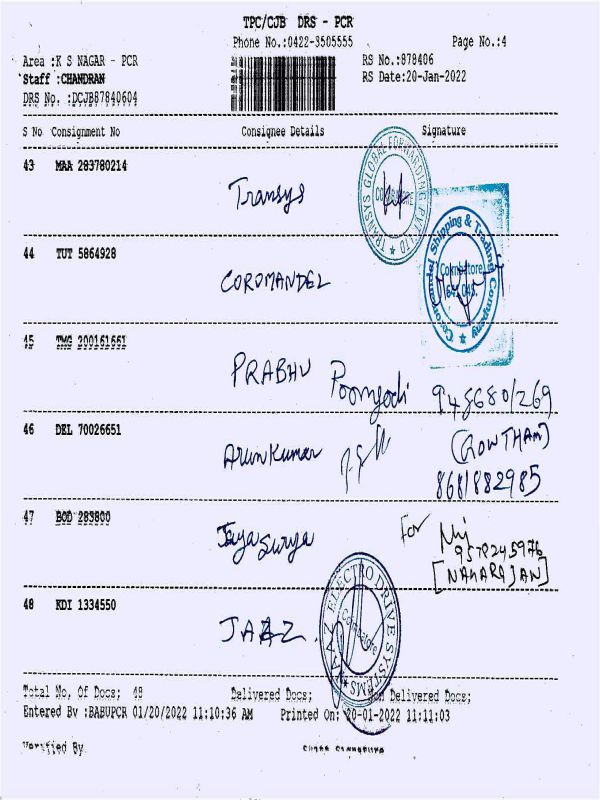 TPC/CJB DRS - PCR
Phone No.:0422-3505555 Page No.:4
Area :K S NAGAR - PCR RS No.:878406
Staff :CHANDRAN RS Date:20-Jan-2022
DRS No. :DCJB87840604
S No Consignment No Consignee Details Signature
43 MAA 283780214
Transys
TRANSYS GLOBAL FORWARDING PVT LTD
COIMBATORE
44 TUT 5864928
COROMANDEL
Coromandel Shipping & Trading Company
Coimbatore
641 045.
45 TMG 200161661
PRABHU Poongodi 9486801269
46 DEL 70026651
ArunKumar (GOWTHAM)
8681882985
47 BOD 283800
Jaya Surya For
9578245976
[NAGARAJAN]
48 KDI 1334550
JAAZ.
JAAZ ELECTRO DRIVE SYSTEMS
Coimbatore
Total No. Of Docs; 48 Delivered Docs; Non Delivered Docs;
Entered By :BABUPCR 01/20/2022 11:10:36 AM Printed On; 20-01-2022 11:11:03
Verified By